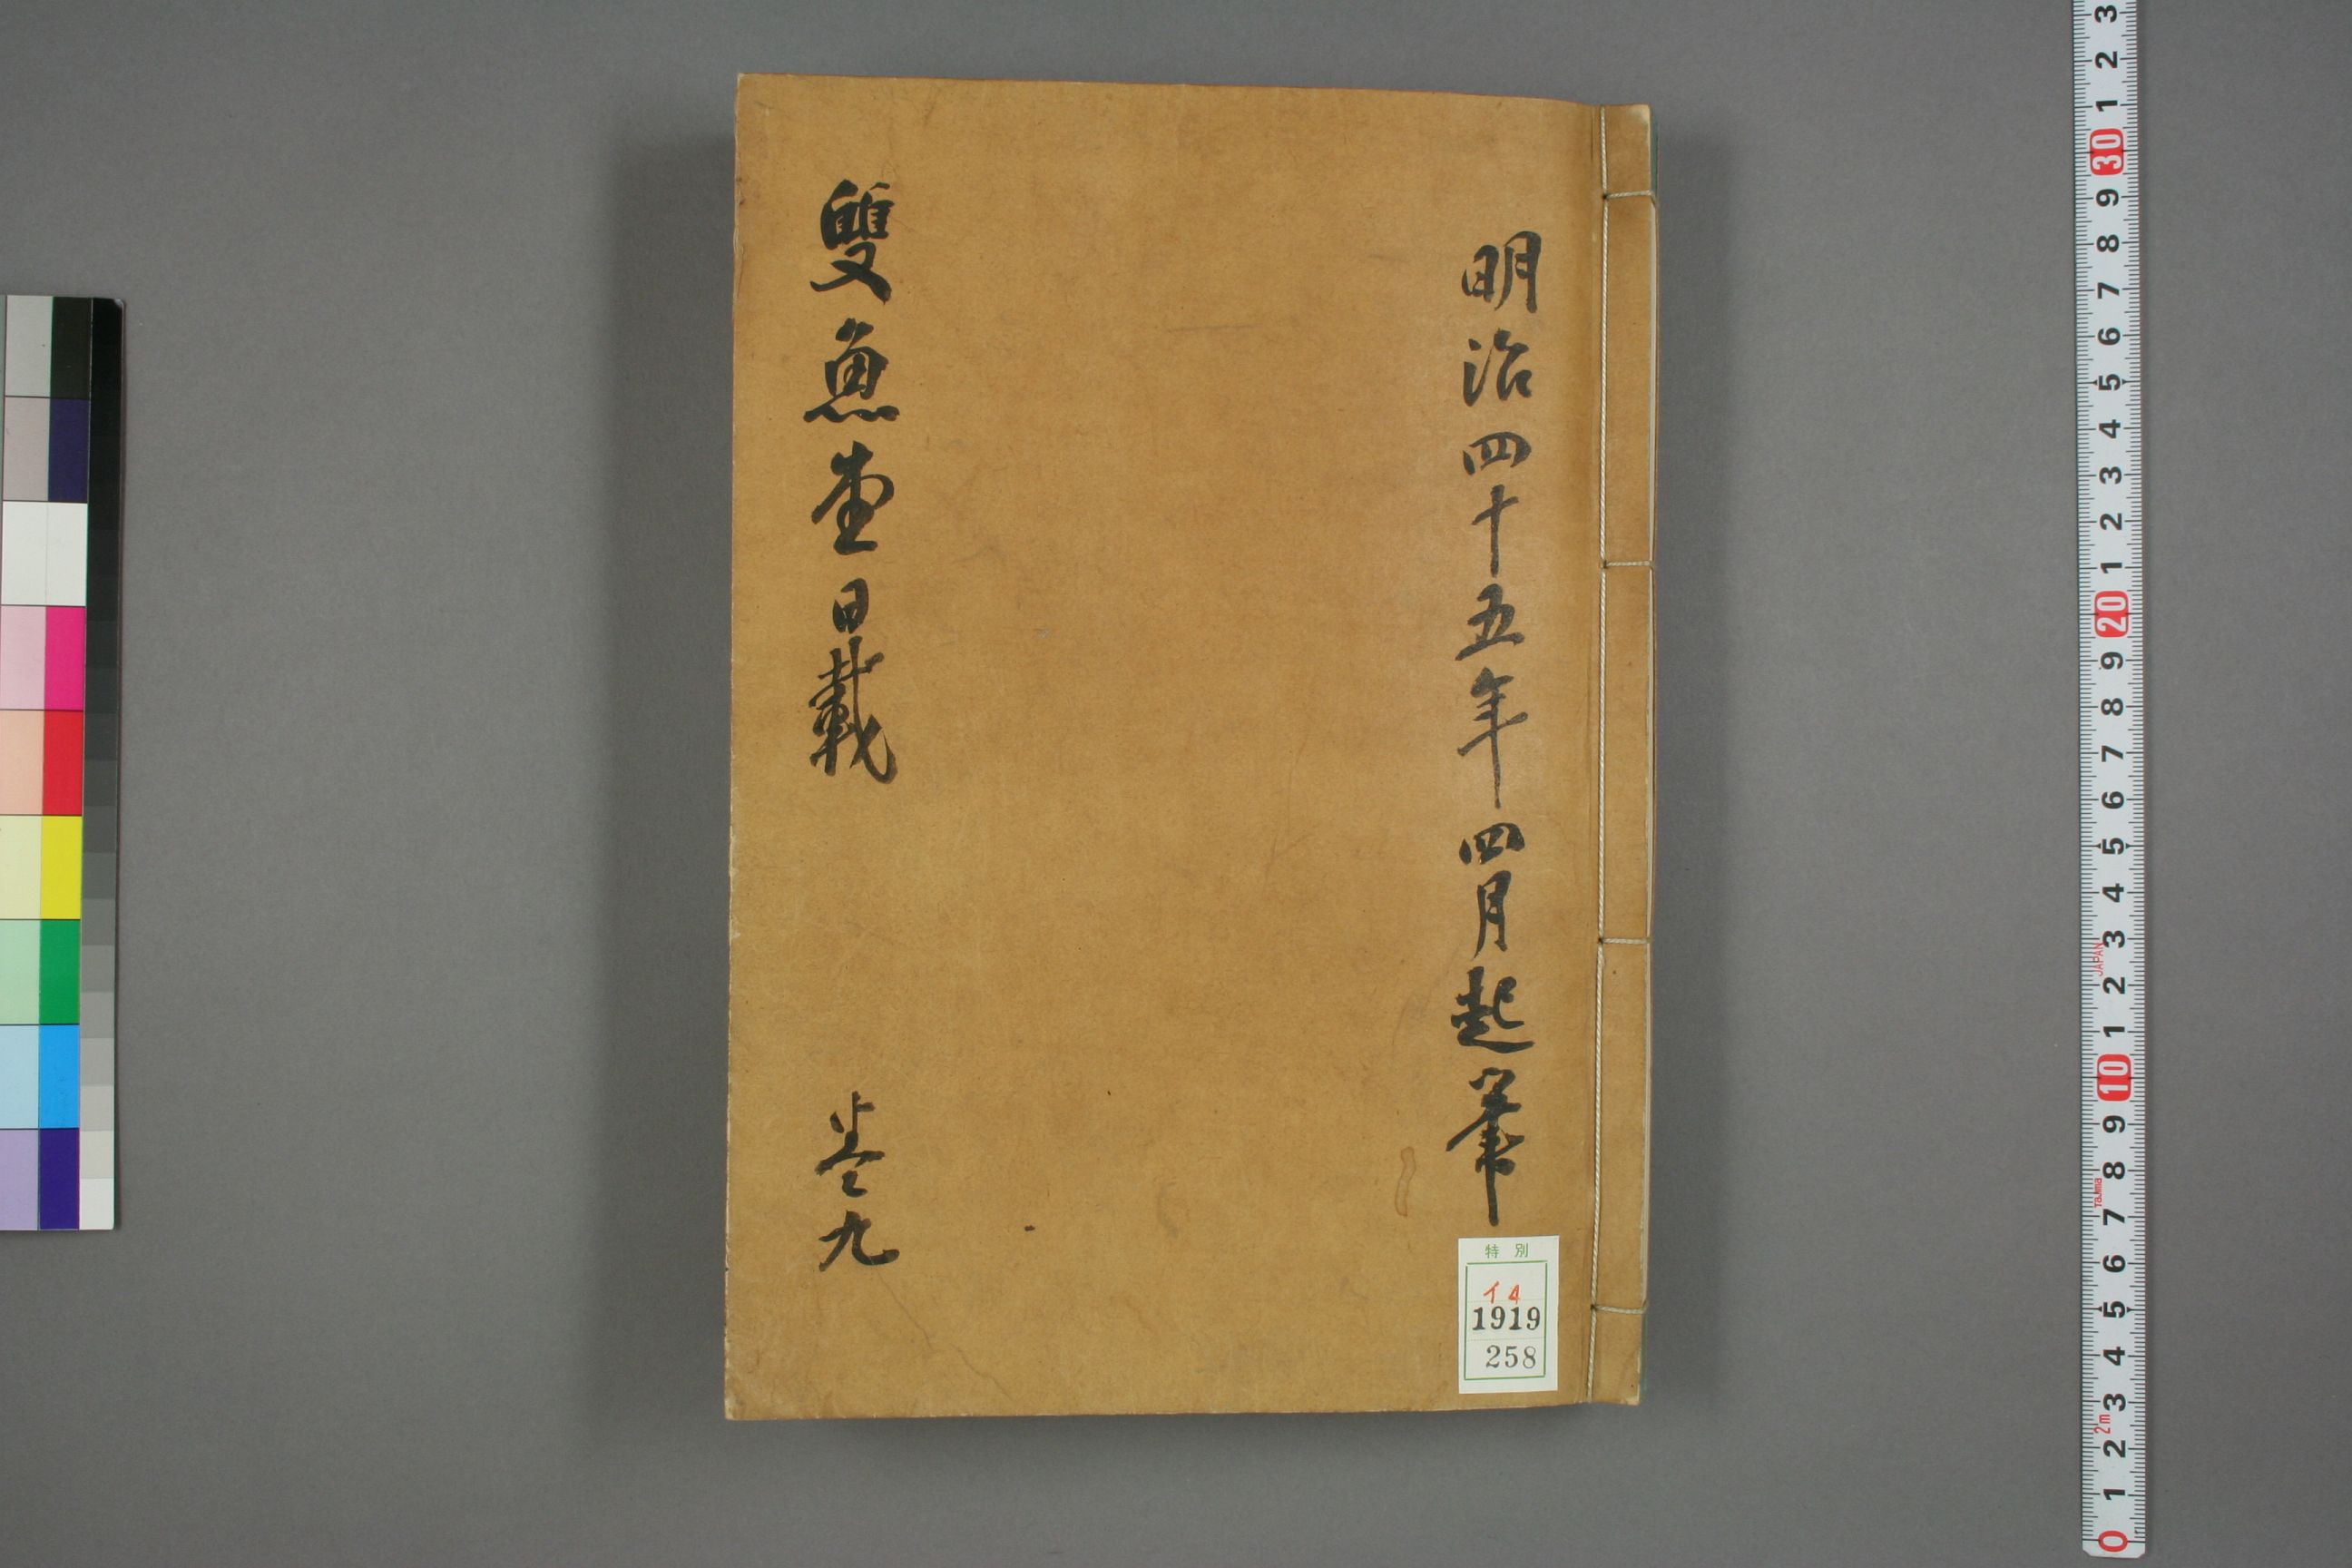 明治四十五年四月起筆
雙魚堂日載 巻九
特別
イ4
1919
258
3
2
1
30
9
8
7
6
5
4
3
2
1
20
9
8
7
6
5
4
3
JAPAN
2
1
10
9
8
Tajima
7
6
5
4
3
2m
2
1
0